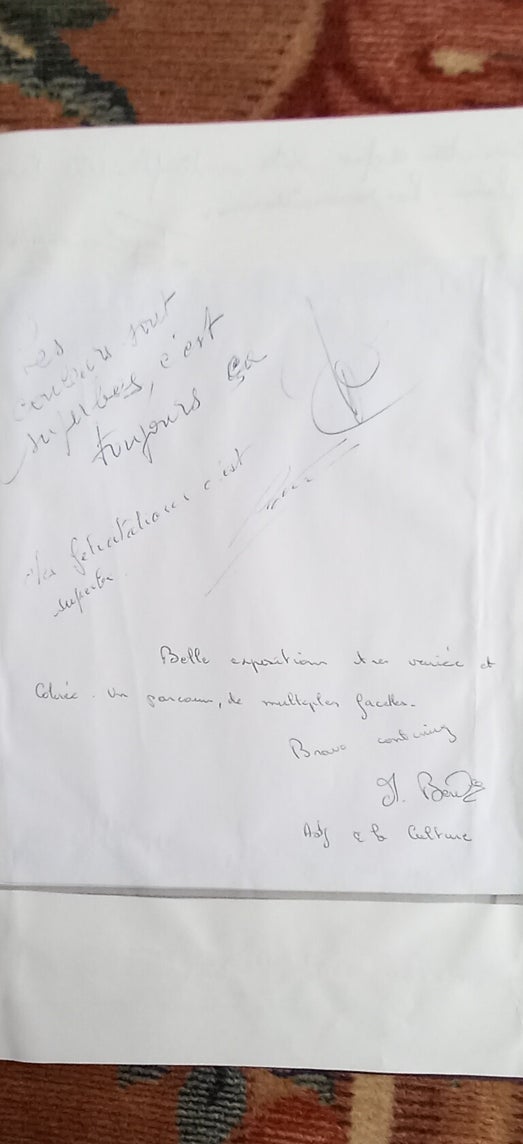 Les
couleurs sont
superbes, c'est
toujours ça
félicitations c'est
superbe.
Belle exposition très variée et
Colorée. Un parcours, de multiples facettes.
Bravo continuez
Adj à la Culture